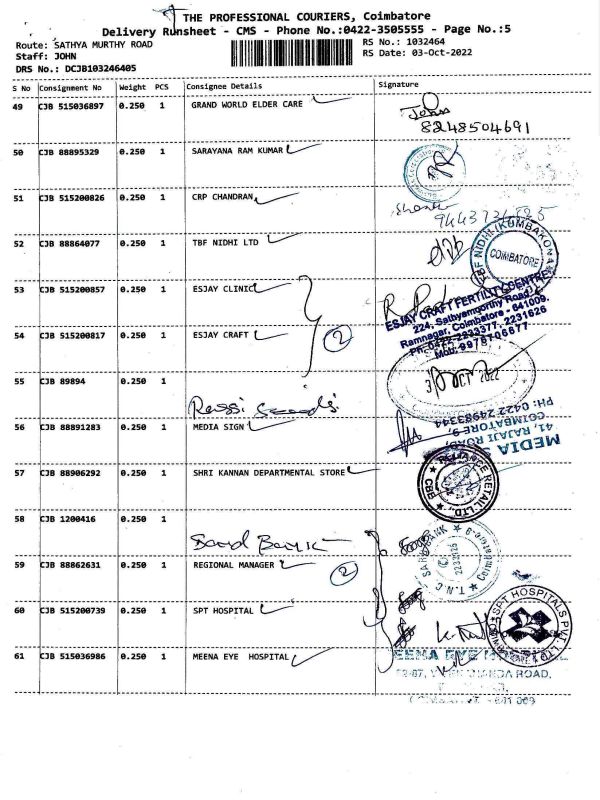 THE PROFESSIONAL COURIERS, Coimbatore
Delivery Runsheet - CMS - Phone No.:0422-3505555 - Page No.:5
Route: SATHYA MURTHY ROAD RS No.: 1032464
Staff: JOHN RS Date: 03-Oct-2022
DRS No.: DCJB103246405
S No Consignment No Weight PCS Consignee Details Signature
49 CJB 515036897 0.250 1 GRAND WORLD ELDER CARE John
8248504691
50 CJB 88895329 0.250 1 SARAYANA RAM KUMAR
51 CJB 515200826 0.250 1 CRP CHANDRAN
52 CJB 88864077 0.250 1 TBF NIDHI LTD
TBF NIDHI (KUMBAKONAM
COIMBATORE
53 CJB 515200857 0.250 1 ESJAY CLINIC
ESJAY CRAFT FERTILITY CENTRE
224, Sathyamoorthy Road,
Ramnagar, Coimbatore - 641009.
Ph: 0422-2333377, 2231626
54 CJB 515200817 0.250 1 ESJAY CRAFT 2
55 CJB 89894 0.250 1
OCT 2022
Rassi Seeds
56 CJB 88891283 0.250 1 MEDIA SIGN
MEDIA
41, RAJAJI ROAD,
COIMBATORE 9,
PH: 0422 2498344
57 CJB 88906292 0.250 1 SHRI KANNAN DEPARTMENTAL STORE
RELIANCE RETAIL LTD.,
CBE
58 CJB 1200416 0.250 1
Sard Bank
SARD BANK
T.N.C
59 CJB 88862631 0.250 1 REGIONAL MANAGER 2
60 CJB 515200739 0.250 1 SPT HOSPITAL
SPT HOSPITALS PVT. LTD
61 CJB 515036986 0.250 1 MEENA EYE HOSPITAL
ROAD,
641 009